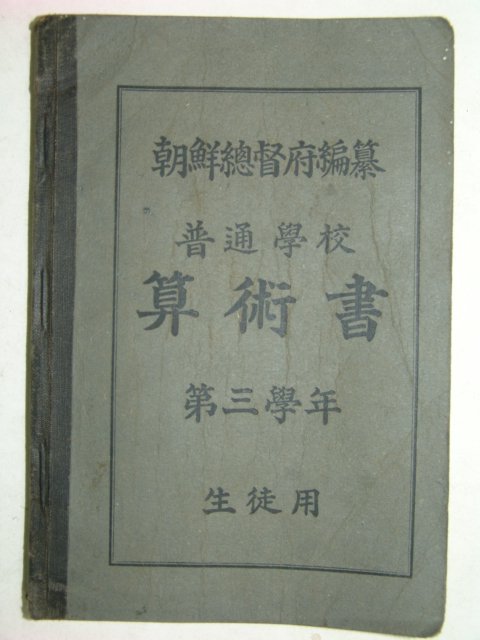 朝鮮總督府編纂
普通學校
算術書
第三學年
生徒用